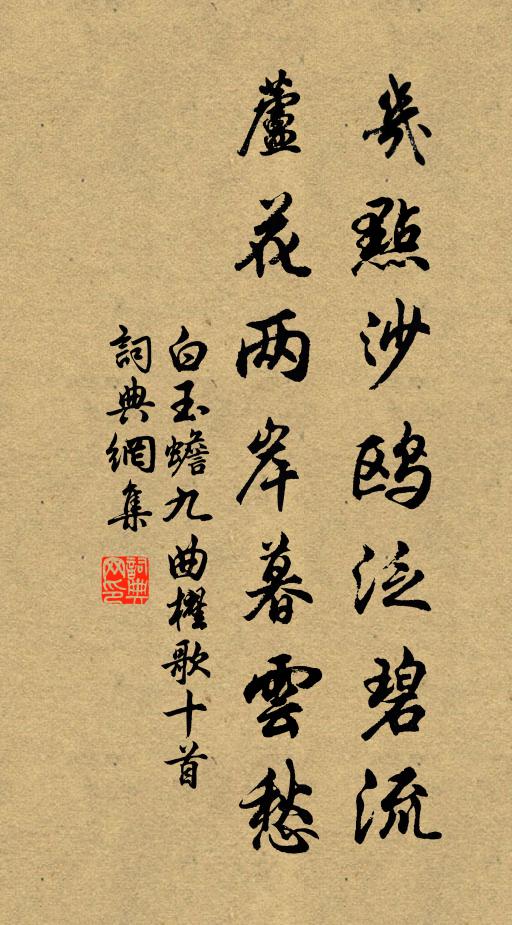 幾點沙鸥泛碧流
蘆花两岸暮雲愁
白玉蟾九曲櫂歌十首
詞典網集
詞典网印